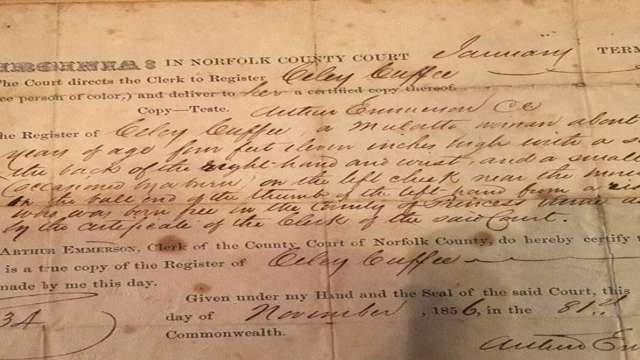 VIRGINIA: IN NORFOLK COUNTY COURT January TERM
The Court directs the Clerk to Register Celey Cuffee
ee person of color,) and deliver to her a certified copy thereof.
Copy—Teste. Arthur Emmerson CC
he Register of Celey Cuffee a Mulatto woman about
years of age four feet eleven inches high with a
the back of the right hand and wrist, and a small
(occasioned by a burn) on the left cheek near the
in the ball end of the thumb of the left hand from a
who was born free in the County of Princess Anne as
by the certificate of the Clerk of the said Court.
ARTHUR EMMERSON, Clerk of the County Court of Norfolk County, do hereby certify t
is a true copy of the Register of Celey Cuffee
made by me this day.
Given under my Hand and the Seal of the said Court, this
day of November, 1856, in the 81st
Commonwealth.
Arthur Em